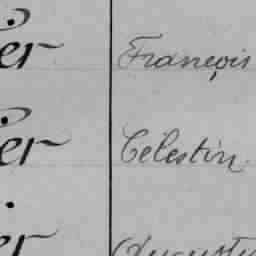 er François
er Celestin
er